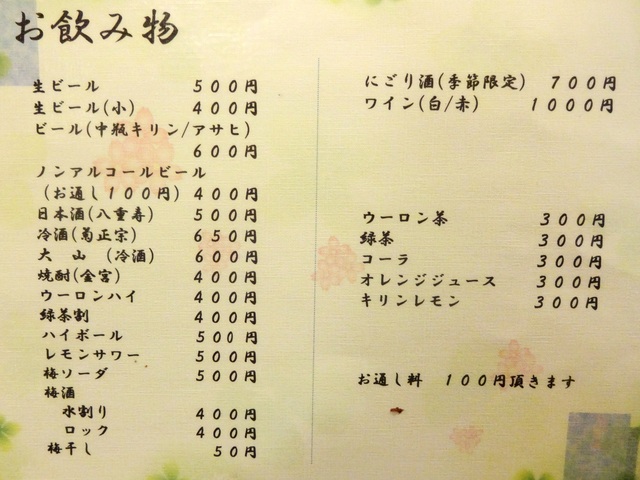 お飲み物
生ビール 500円
生ビール(小) 400円
ビール(中瓶キリン/アサヒ)
600円
ノンアルコールビール
(お通し100円) 400円
日本酒(八重寿) 500円
冷酒(菊正宗) 650円
大 山 (冷酒) 600円
焼酎(金宮) 400円
ウーロンハイ 400円
緑茶割 400円
ハイボール 500円
レモンサワー 500円
梅ソーダ 500円
梅酒
水割り 400円
ロック 400円
梅干し 50円
にごり酒(季節限定) 700円
ワイン(白/赤) 1000円
ウーロン茶 300円
緑茶 300円
コーラ 300円
オレンジジュース 300円
キリンレモン 300円
お通し料 100円頂きます